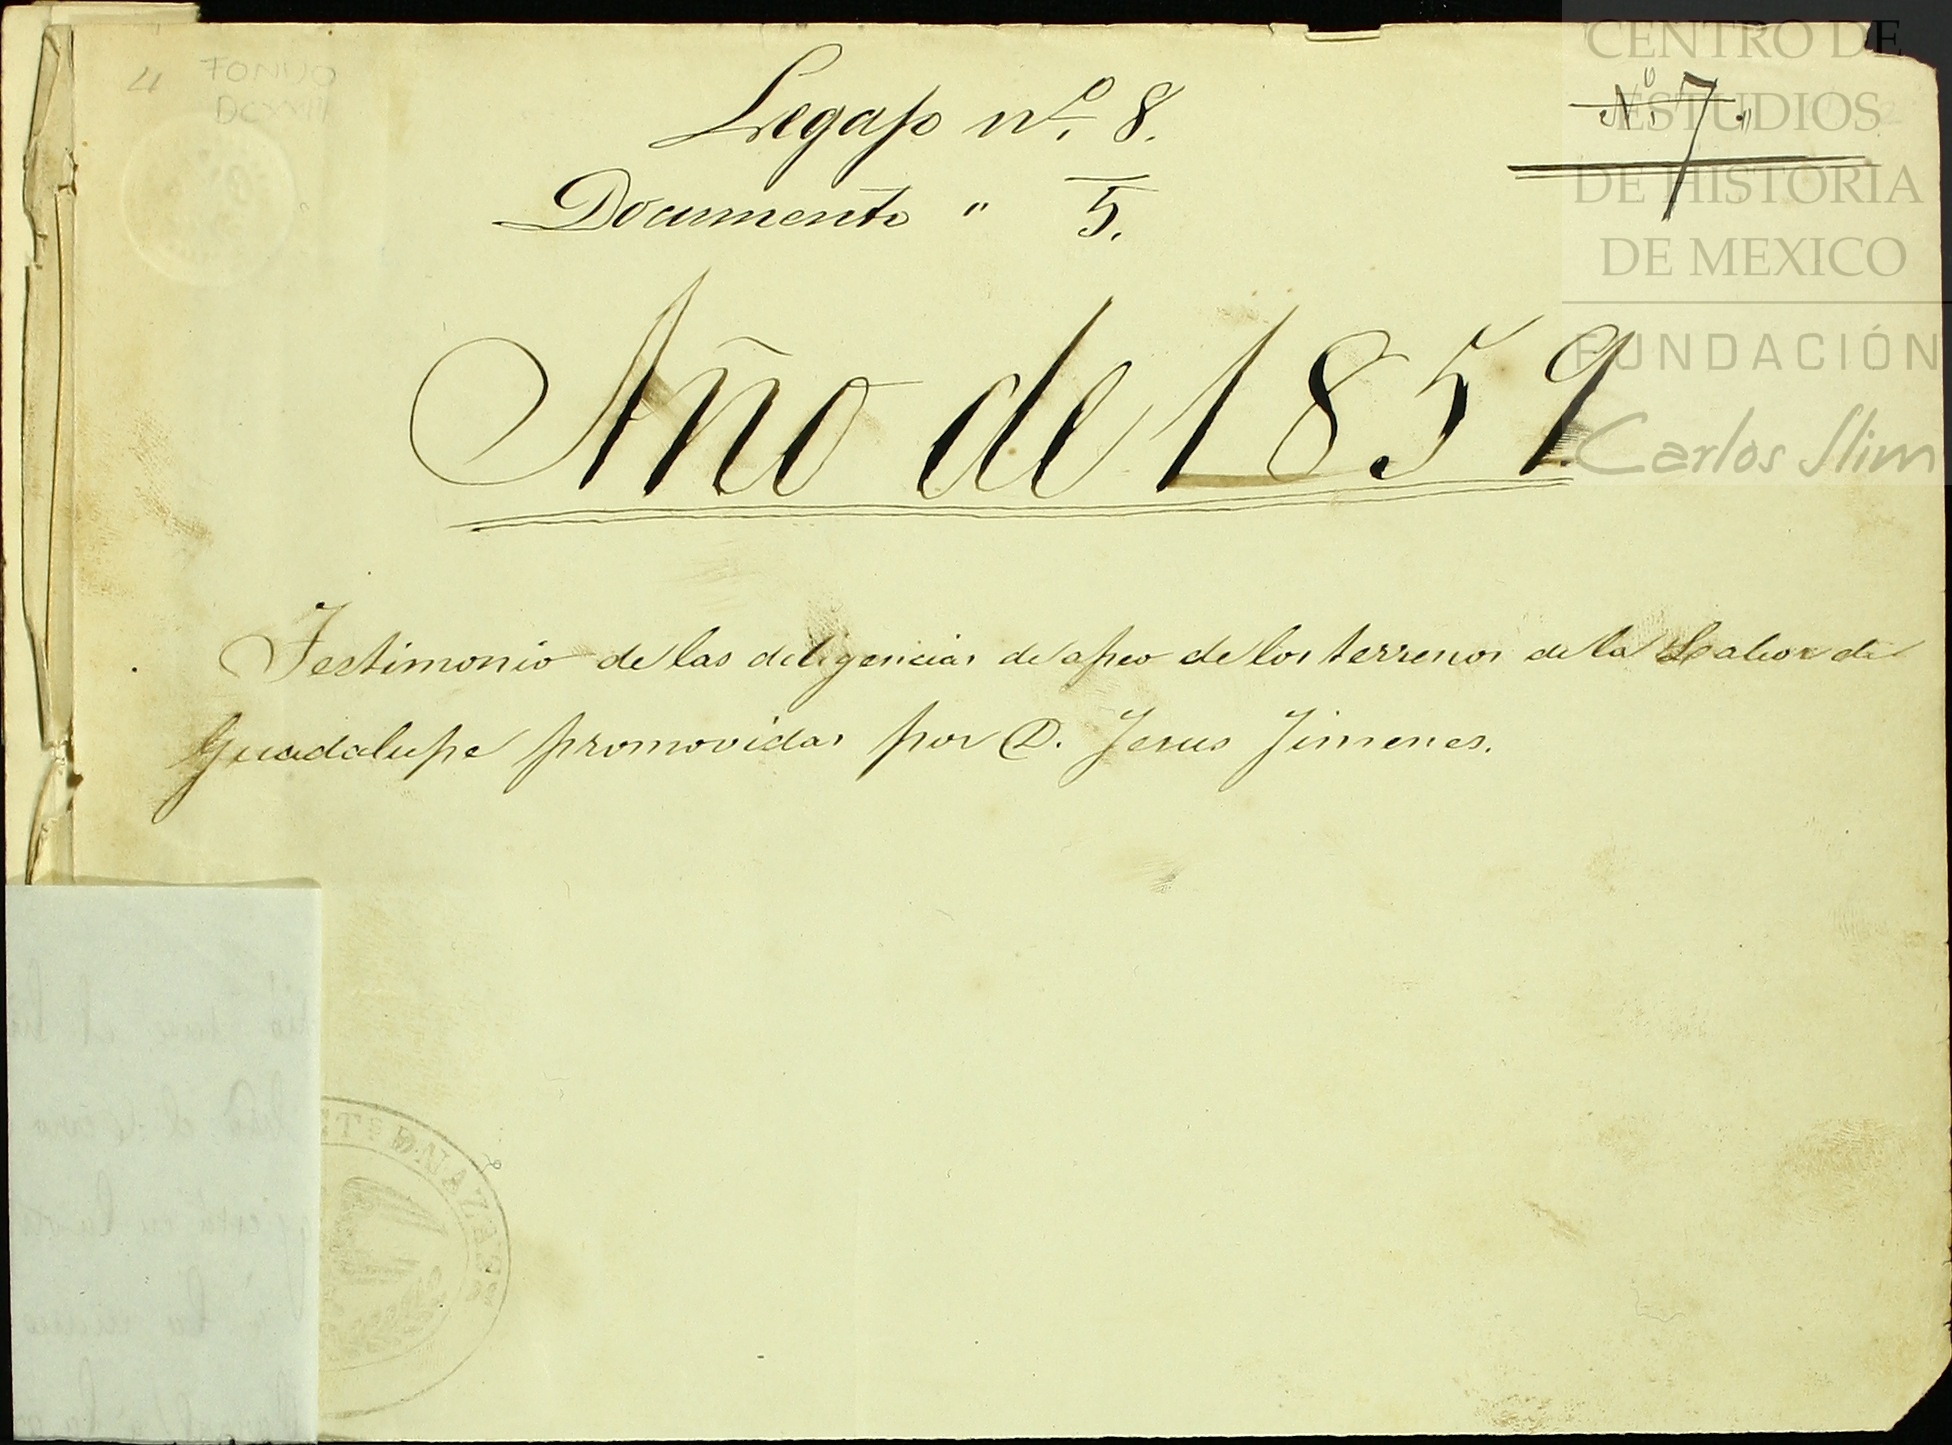 4 FONDO
DCXXIII
Legajo nº. 8.
Nº. 7."
Documento " 5.
Año de 1859.
Testimonio de las diligencias de apeo de los terrenos de la Labor de
Guadalupe promovidas por D. Jesus Jimenes.
CENTRO DE
ESTUDIOS
DE HISTORIA
DE MEXICO
FUNDACIÓN
Carlos Slim